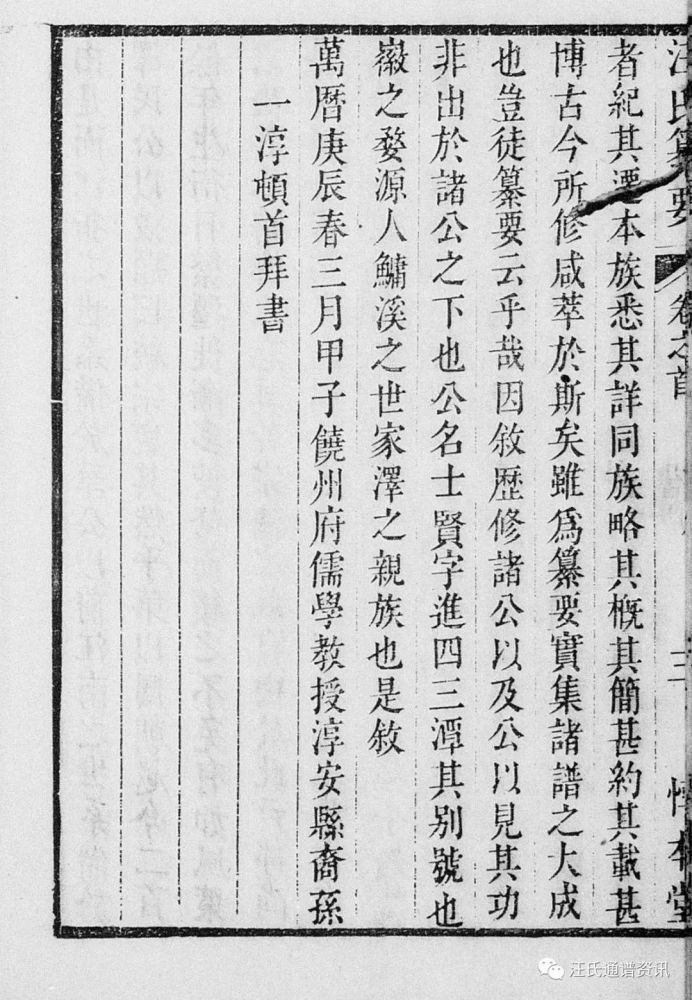 汪氏纂要 卷之首 三 本堂
者紀其遷本族悉其詳同族略其概其簡甚約其載甚
博古今所修咸萃於斯矣雖爲纂要實集諸譜之大成
也豈徒纂要云乎哉因敘歷修諸公以及公以見其功
非出於諸公之下也公名士賢字進四三潭其别號也
徽之婺源人鱅溪之世家澤之親族也是敘
萬曆庚辰春三月甲子饒州府儒學教授淳安縣裔孫
一淳頓首拜書
汪氏通谱资讯